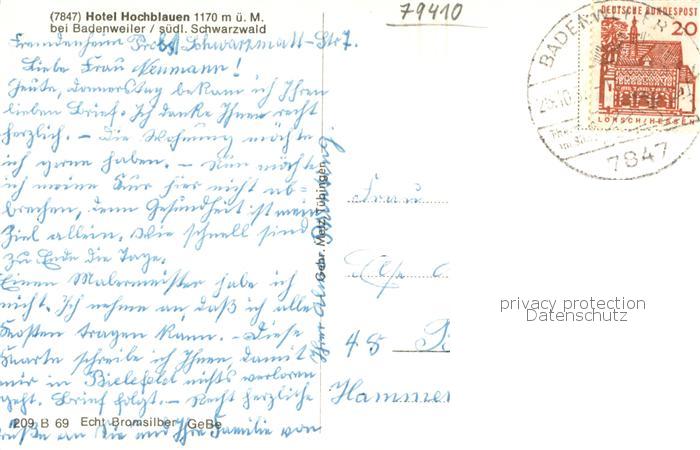 (7847) Hotel Hochblauen 1170 m ü. M.
bei Badenweiler / südl. Schwarzwald
79410
Fremdenheim Probst, Schwarzmatt-Str 7.
Liebe Frau Neumann!
Heute, donnerstag bekam ich Ihren
lieben Brief. Ich danke Ihnen recht
herzlich. – Die Wohnung möchte
ich gerne haben. – Nun möchte
ich meine Kur hier nicht ab=
brechen, denn Gesundheit ist mein
Ziel allein. Wie schnell sind
zu Ende die Tage.
Einen Malermeister habe ich
nicht. Ich nehme an, daß ich alle
Kosten tragen kann. – Diese
Karte schreibe ich Ihnen, damit
wir in Bielefeld nichts verloren
geht. Brief folgt. – Recht herzliche
Grüße an Sie und Ihre Familie von
Ihrer
209 B 69 Echt Bromsilber GeBe
Gebr. Metz, Tübingen
Frau
Else
48
Hammer
BADENWEILER
7847
DEUTSCHE BUNDESPOST
20
LORSCH/HESSEN
privacy protection
Datenschutz